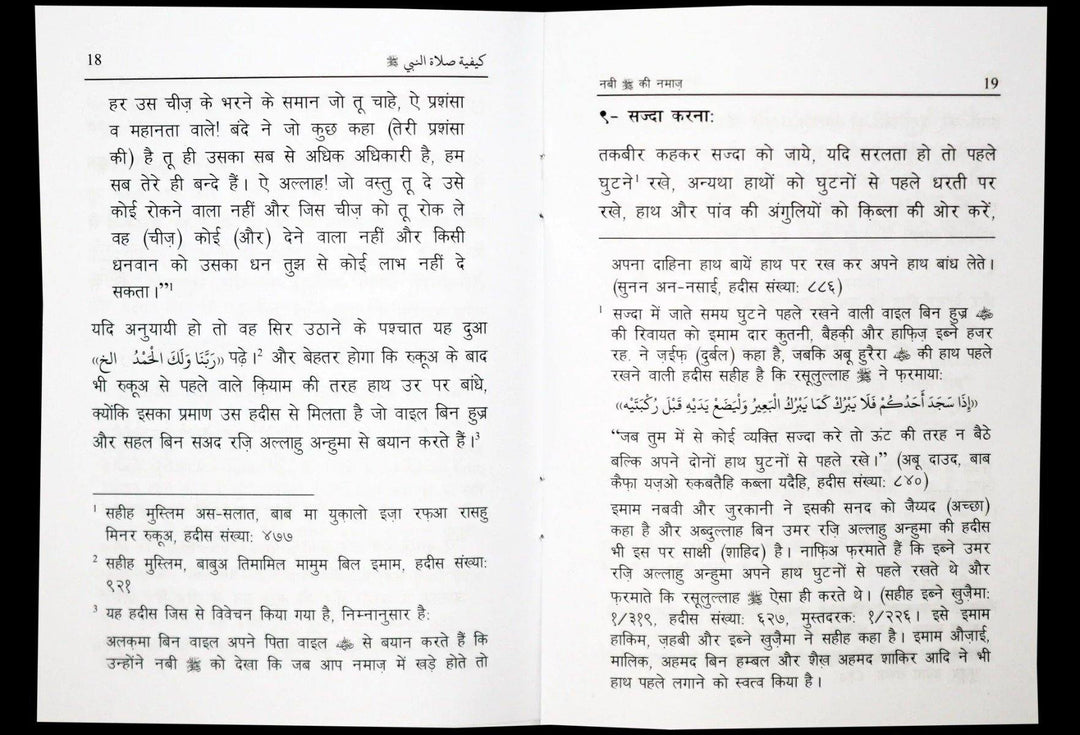 18 كيفية صلاة النبي ﷺ
हर उस चीज़ के भरने के समान जो तू चाहे, ऐ प्रशंसा
व महानता वाले! बंदे ने जो कुछ कहा (तेरी प्रशंसा
की) है तू ही उसका सब से अधिक अधिकारी है, हम
सब तेरे ही बन्दे हैं। ऐ अल्लाह! जो वस्तु तू दे उसे
कोई रोकने वाला नहीं और जिस चीज़ को तू रोक ले
वह (चीज़) कोई (और) देने वाला नहीं और किसी
धनवान को उसका धन तुझ से कोई लाभ नहीं दे
सकता।”¹
यदि अनुयायी हो तो वह सिर उठाने के पश्चात यह दुआ
«رَبَّنَا وَلَكَ الْحَمْدُ الخ» पढ़े।² और बेहतर होगा कि रुकूअ के बाद
भी रुकूअ से पहले वाले क़ियाम की तरह हाथ उर पर बांधे,
क्योंकि इसका प्रमाण उस हदीस से मिलता है जो वाइल बिन हुज्र
और सहल बिन सअद रज़ि अल्लाहु अन्हुमा से बयान करते हैं।³
¹ सहीह मुस्लिम अस-सलात, बाब मा युक़ालो इज़ा रफ़आ रासहु
मिनर रुकूअ, हदीस संख्या: ४७७
² सहीह मुस्लिम, बाबुअ तिमामिल मामुम बिल इमाम, हदीस संख्या:
९२१
³ यह हदीस जिस से विवेचन किया गया है, निम्नानुसार है:
अलक़मा बिन वाइल अपने पिता वाइल ؓ से बयान करते हैं कि
उन्होंने नबी ﷺ को देखा कि जब आप नमाज़ में खड़े होते तो
नबी ﷺ की नमाज़ 19
९- सज्दा करना:
तकबीर कहकर सज्दा को जाये, यदि सरलता हो तो पहले
घुटने¹ रखे, अन्यथा हाथों को घुटनों से पहले धरती पर
रखे, हाथ और पांव की अंगुलियों को क़िब्ला की ओर करें,
अपना दाहिना हाथ बायें हाथ पर रख कर अपने हाथ बांध लेते।
(सुनन अन-नसाई, हदीस संख्या: ८८६)
¹ सज्दा में जाते समय घुटने पहले रखने वाली वाइल बिन हुज्र ؓ
की रिवायत को इमाम दार कुतनी, बैहक़ी और हाफिज़ इब्ने हजर
रह. ने ज़ईफ़ (दुर्बल) कहा है, जबकि अबू हुरैरा ؓ की हाथ पहले
रखने वाली हदीस सहीह है कि रसूलुल्लाह ﷺ ने फ़रमाया:
«إِذَا سَجَدَ أَحَدُكُمْ فَلَا يَبْرُكْ كَمَا يَبْرُكُ الْبَعِيرُ وَلْيَضَعْ يَدَيْهِ قَبْلَ رُكْبَتَيْه»
“जब तुम में से कोई व्यक्ति सज्दा करे तो ऊंट की तरह न बैठे
बल्कि अपने दोनों हाथ घुटनों से पहले रखे।” (अबू दाउद, बाब
कैफ़ा यज़ओ रुकबतैहि कब्ला यदैहि, हदीस संख्या: ८४०)
इमाम नबवी और ज़ुरकानी ने इसकी सनद को जैय्यद (अच्छा)
कहा है और अब्दुल्लाह बिन उमर रज़ि अल्लाहु अन्हुमा की हदीस
भी इस पर साक्षी (शाहिद) है। नाफ़िअ फ़रमाते हैं कि इब्ने उमर
रज़ि अल्लाहु अन्हुमा अपने हाथ घुटनों से पहले रखते थे और
फ़रमाते कि रसूलुल्लाह ﷺ ऐसा ही करते थे। (सहीह इब्ने खुज़ैमा:
१/३१९, हदीस संख्या: ६२७, मुस्तदरक: १/२२६। इसे इमाम
हाकिम, ज़हबी और इब्ने खुज़ैमा ने सहीह कहा है। इमाम औज़ाई,
मालिक, अहमद बिन हम्बल और शैख़ अहमद शाकिर आदि ने भी
हाथ पहले लगाने को स्वत्व किया है।